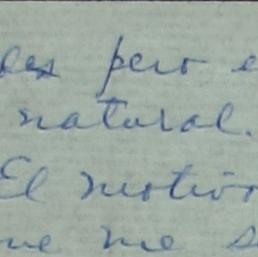 des pero e
natural.
El motivo
ue me s